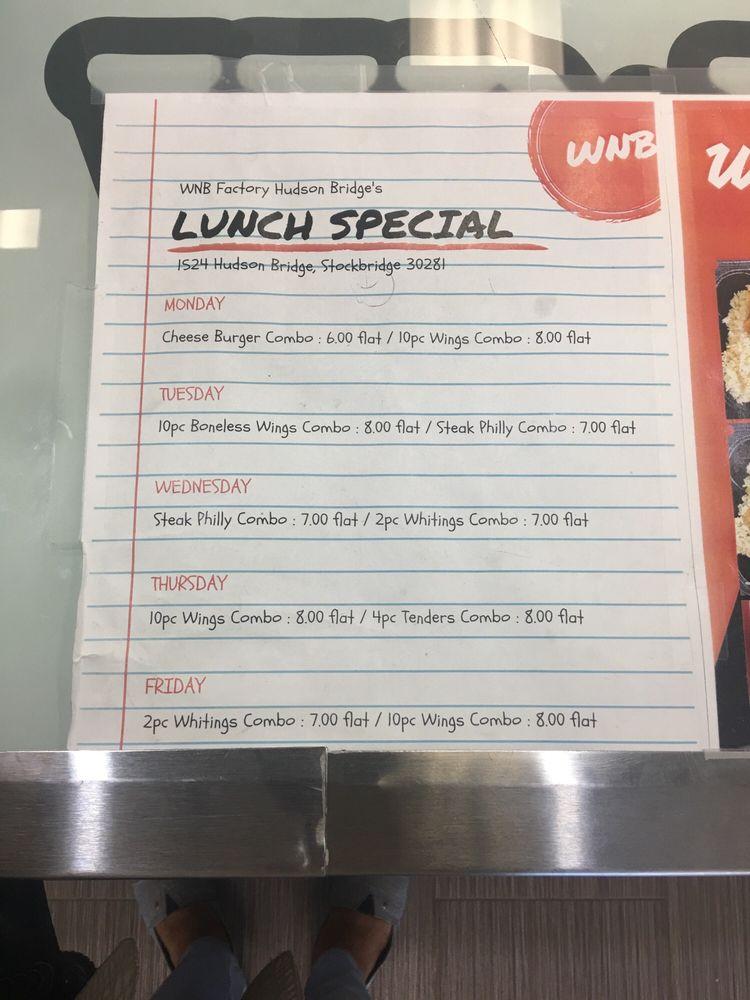 WNB
WNB Factory Hudson Bridge's
LUNCH SPECIAL
1524 Hudson Bridge, Stockbridge 30281
MONDAY
Cheese Burger Combo : 6.00 flat / 10pc Wings Combo : 8.00 flat
TUESDAY
10pc Boneless Wings Combo : 8.00 flat / Steak Philly Combo : 7.00 flat
WEDNESDAY
Steak Philly Combo : 7.00 flat / 2pc Whitings Combo : 7.00 flat
THURSDAY
10pc Wings Combo : 8.00 flat / 4pc Tenders Combo : 8.00 flat
FRIDAY
2pc Whitings Combo : 7.00 flat / 10pc Wings Combo : 8.00 flat